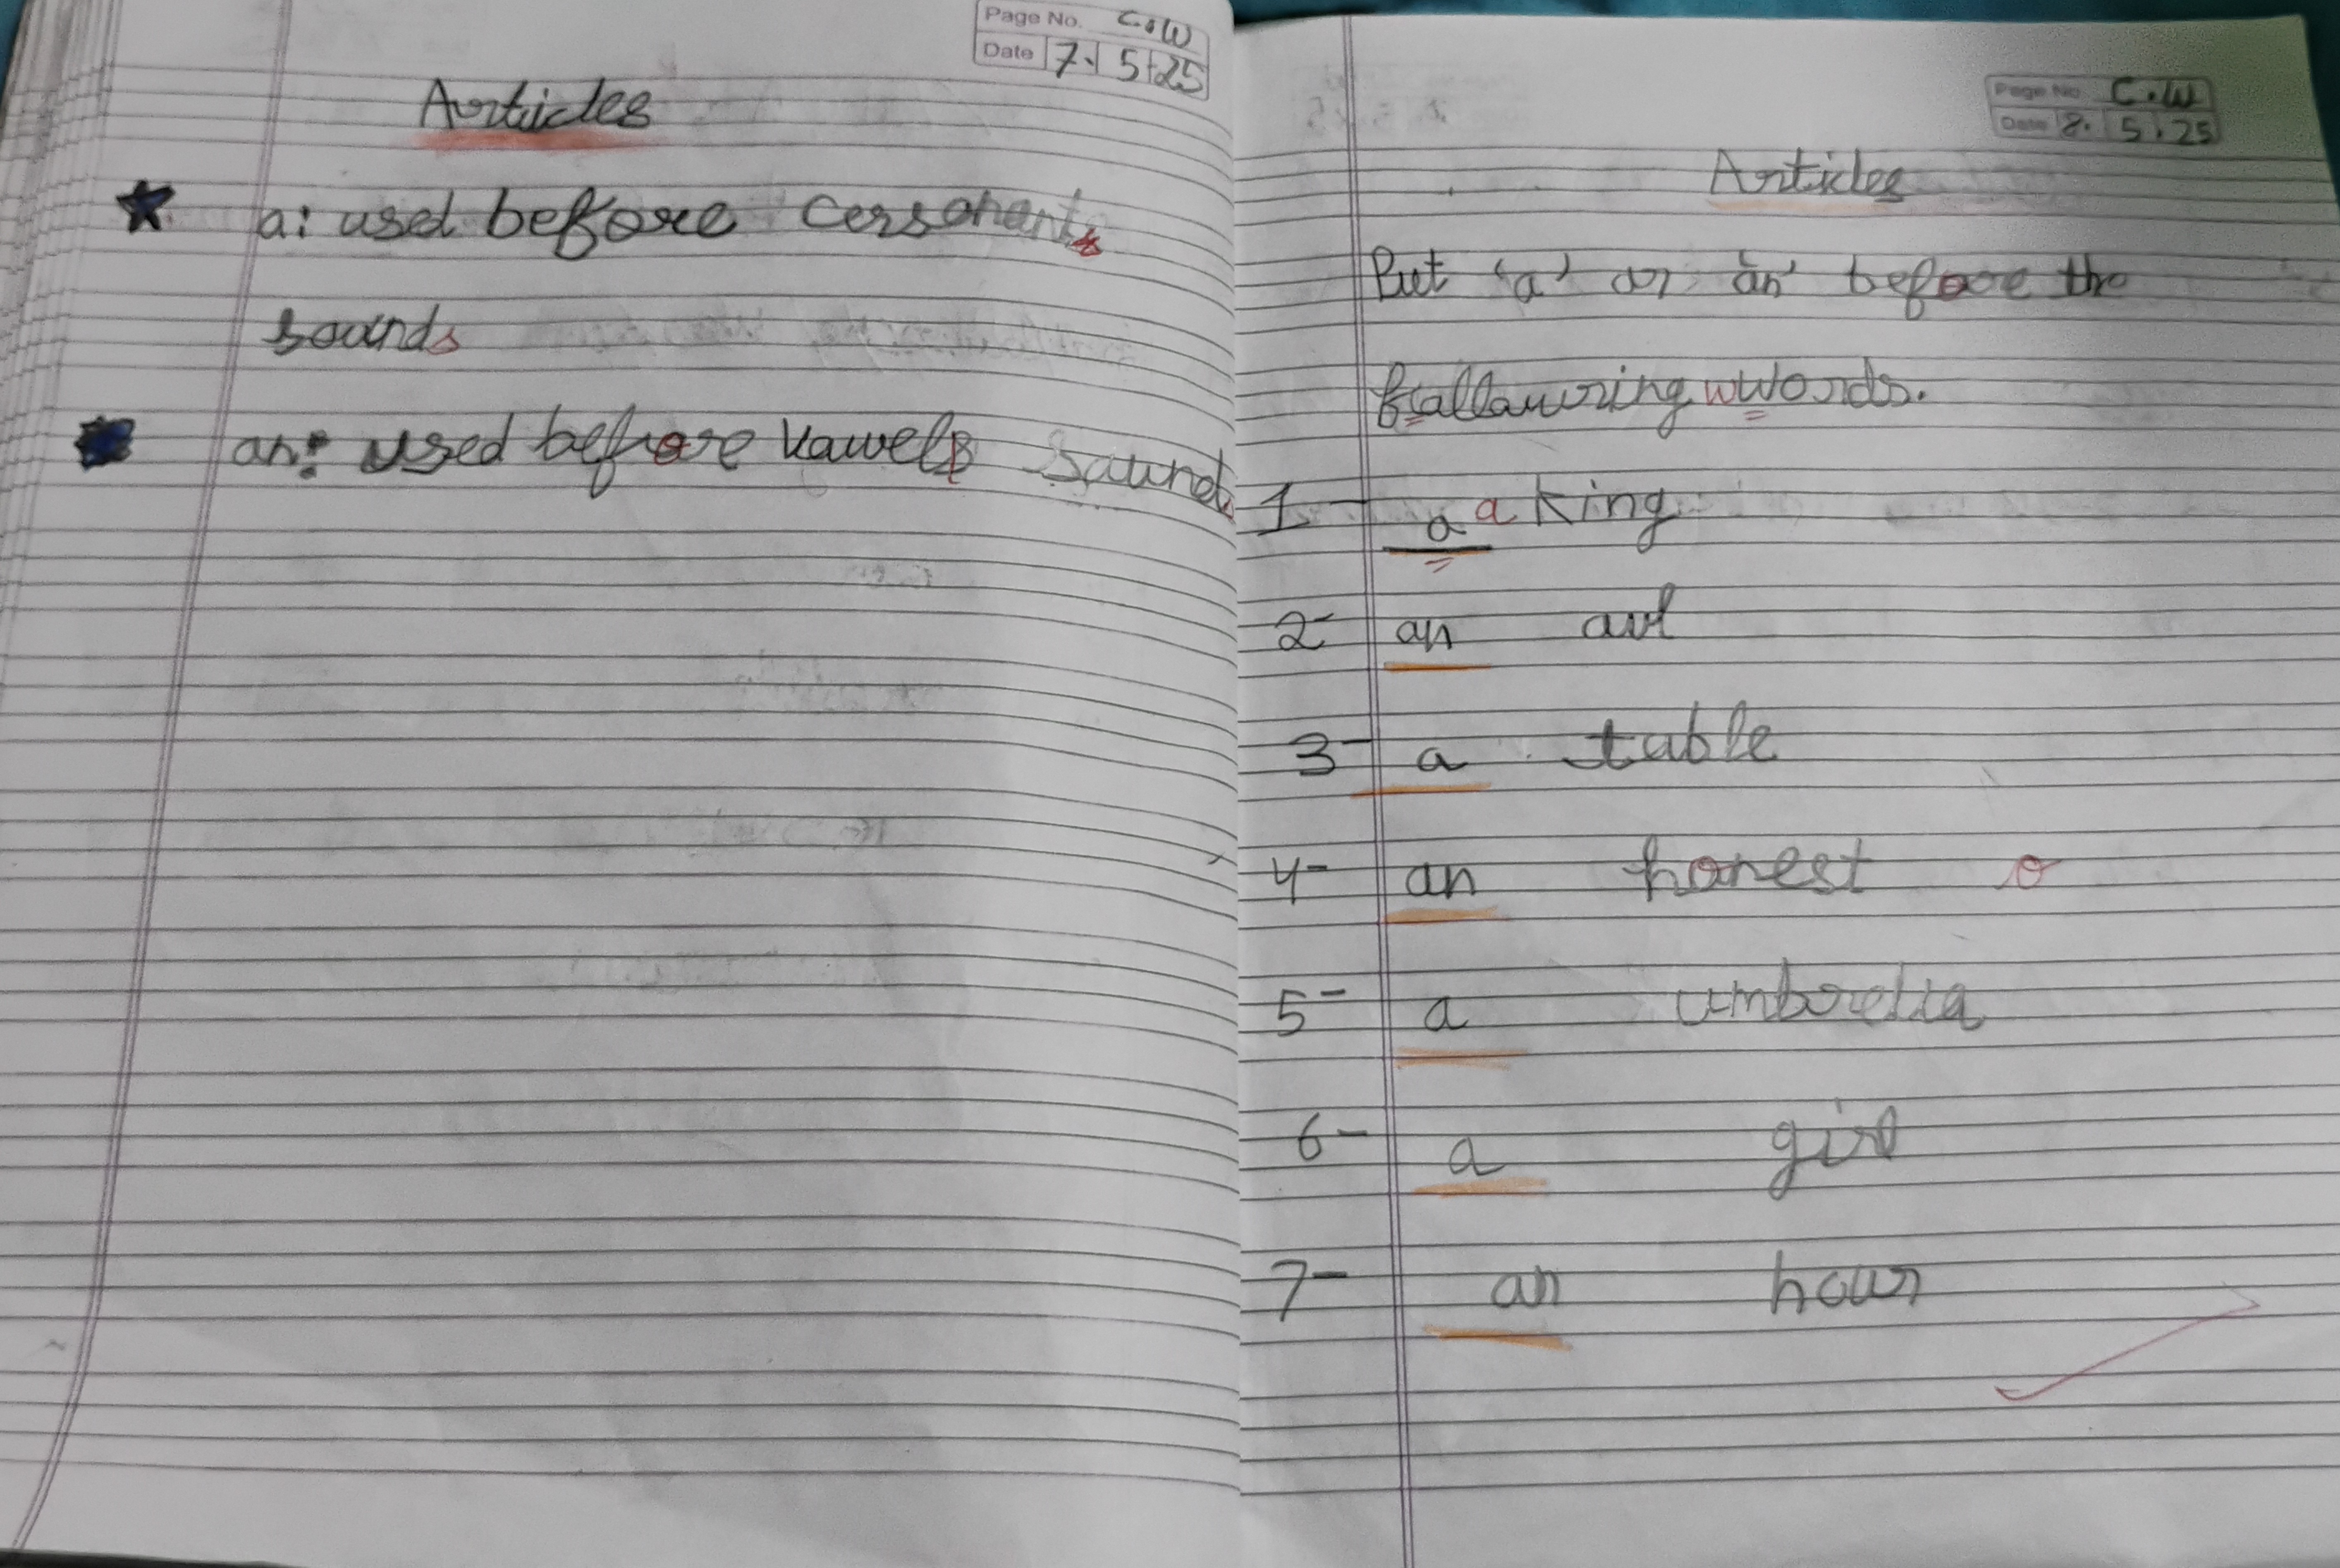 Page No. C.W
Date 7. 5 25
Articles
a: used before consonants
sounds
an: used before vowels sounds
Page No. C.W
Date 8. 5. 25
Articles
Put 'a' or 'an' before the
following wwords.
1- a a King
2- an owl
3- a table
4- an honest o
5- a umbrella
6- a girl
7- an hour